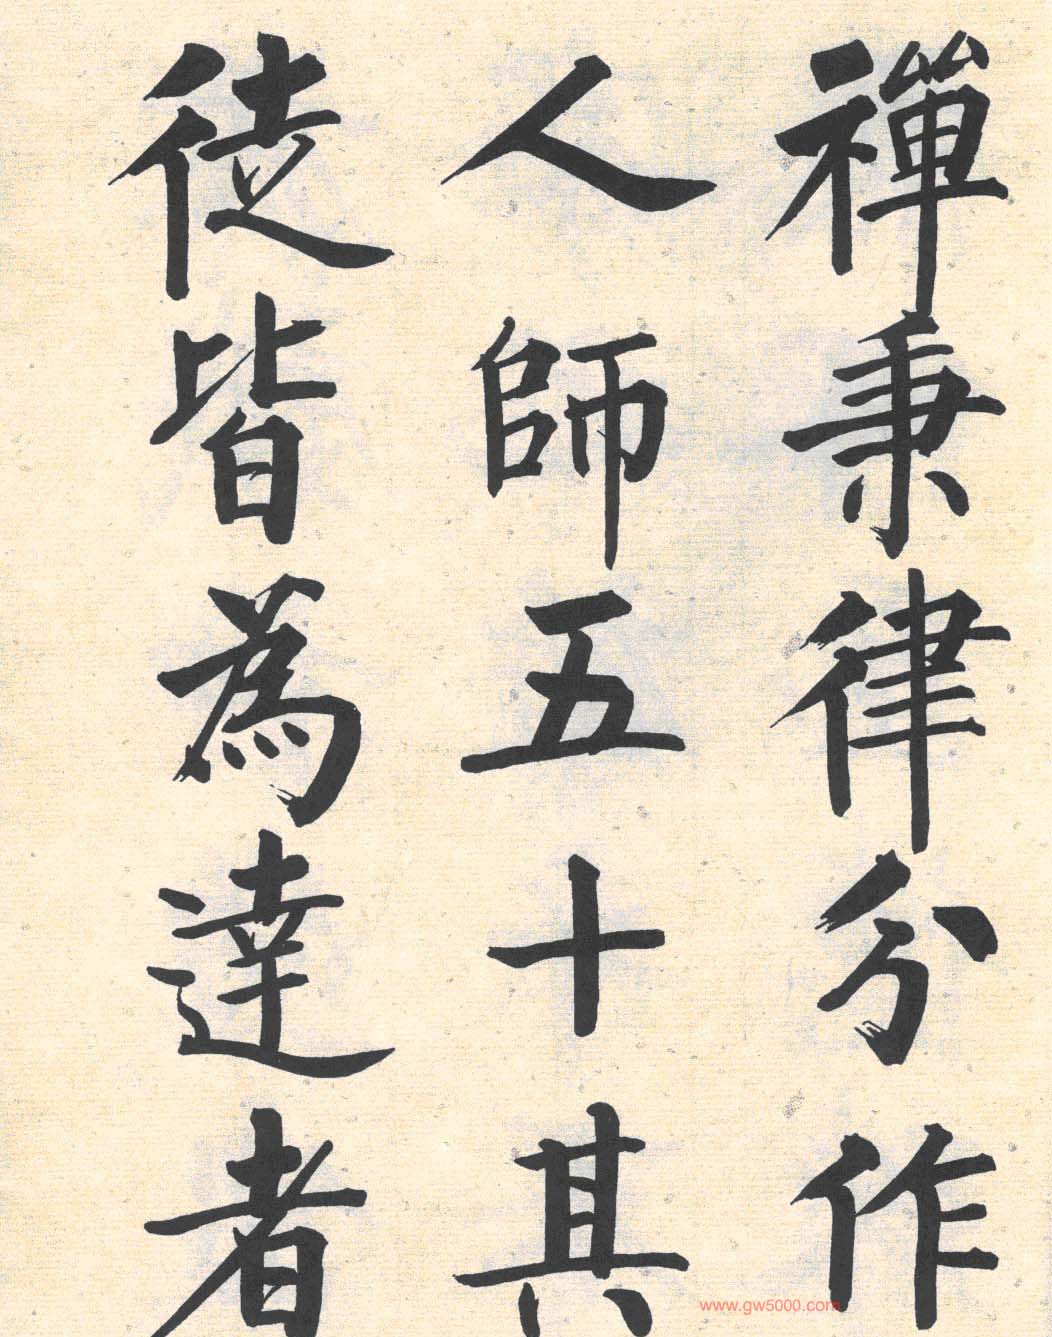 禪秉律分作
人師五十其
徒皆為達者
www.gw5000.com